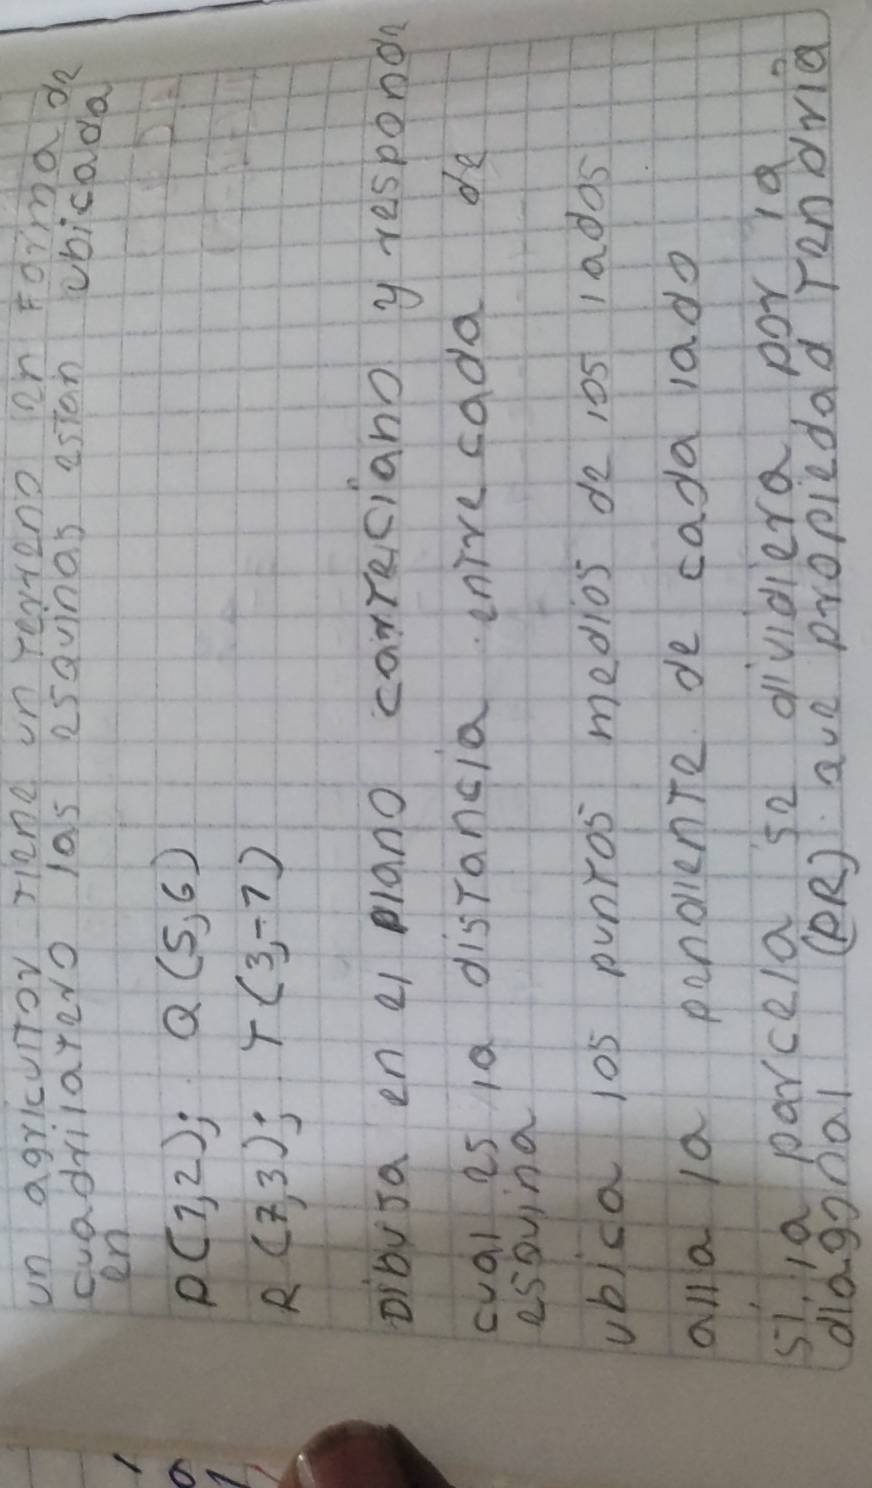 un agricultor tiene un terreno en forma de
cuadrilatero las esquinas estan ubicada
en
P(1,2); Q(5,6)
R(7,3); T(3,-1)
Dibuja en el plano carteciano y responde
cual es la distancia entre cada de
esquina
ubica los puntos medios de los lados
alla la pendiente de cada lado
si la parcela se dividiera por la
diagonal (PR) que propiedad tendria